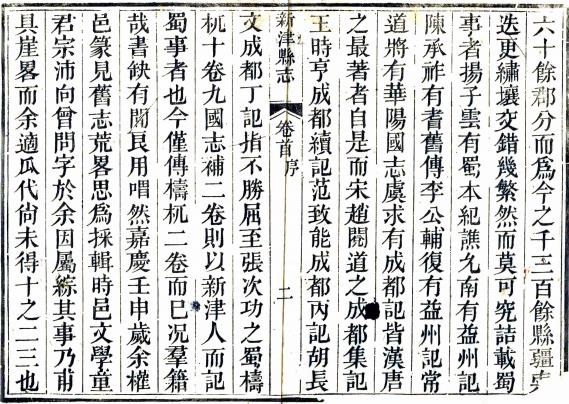 六十餘郡分而爲今之千三百餘縣疆索
迭更繡壤交錯幾繁然而莫可究詰載蜀
事者揚子雲有蜀本紀譙允南有益州記
陳承祚有耆舊傳李公輔復有益州記常
道將有華陽國志虞求有成都記皆漢唐
之最著者自是而宋趙閱道之成都集記
王時亨成都續記范致能成都丙記胡長
新津縣志 卷首 序 二
文成都丁記指不勝屈至張次功之蜀檮
杌十卷九國志補二卷則以新津人而記
蜀事者也今僅傳檮杌二卷而巳况羣籍
哉書缺有閒良用喟然嘉慶壬申歲余權
邑篆見舊志荒畧思爲採輯時邑文學童
君宗沛向曾問字於余因屬綜其事乃甫
具崖畧而余適瓜代尙未得十之二三也